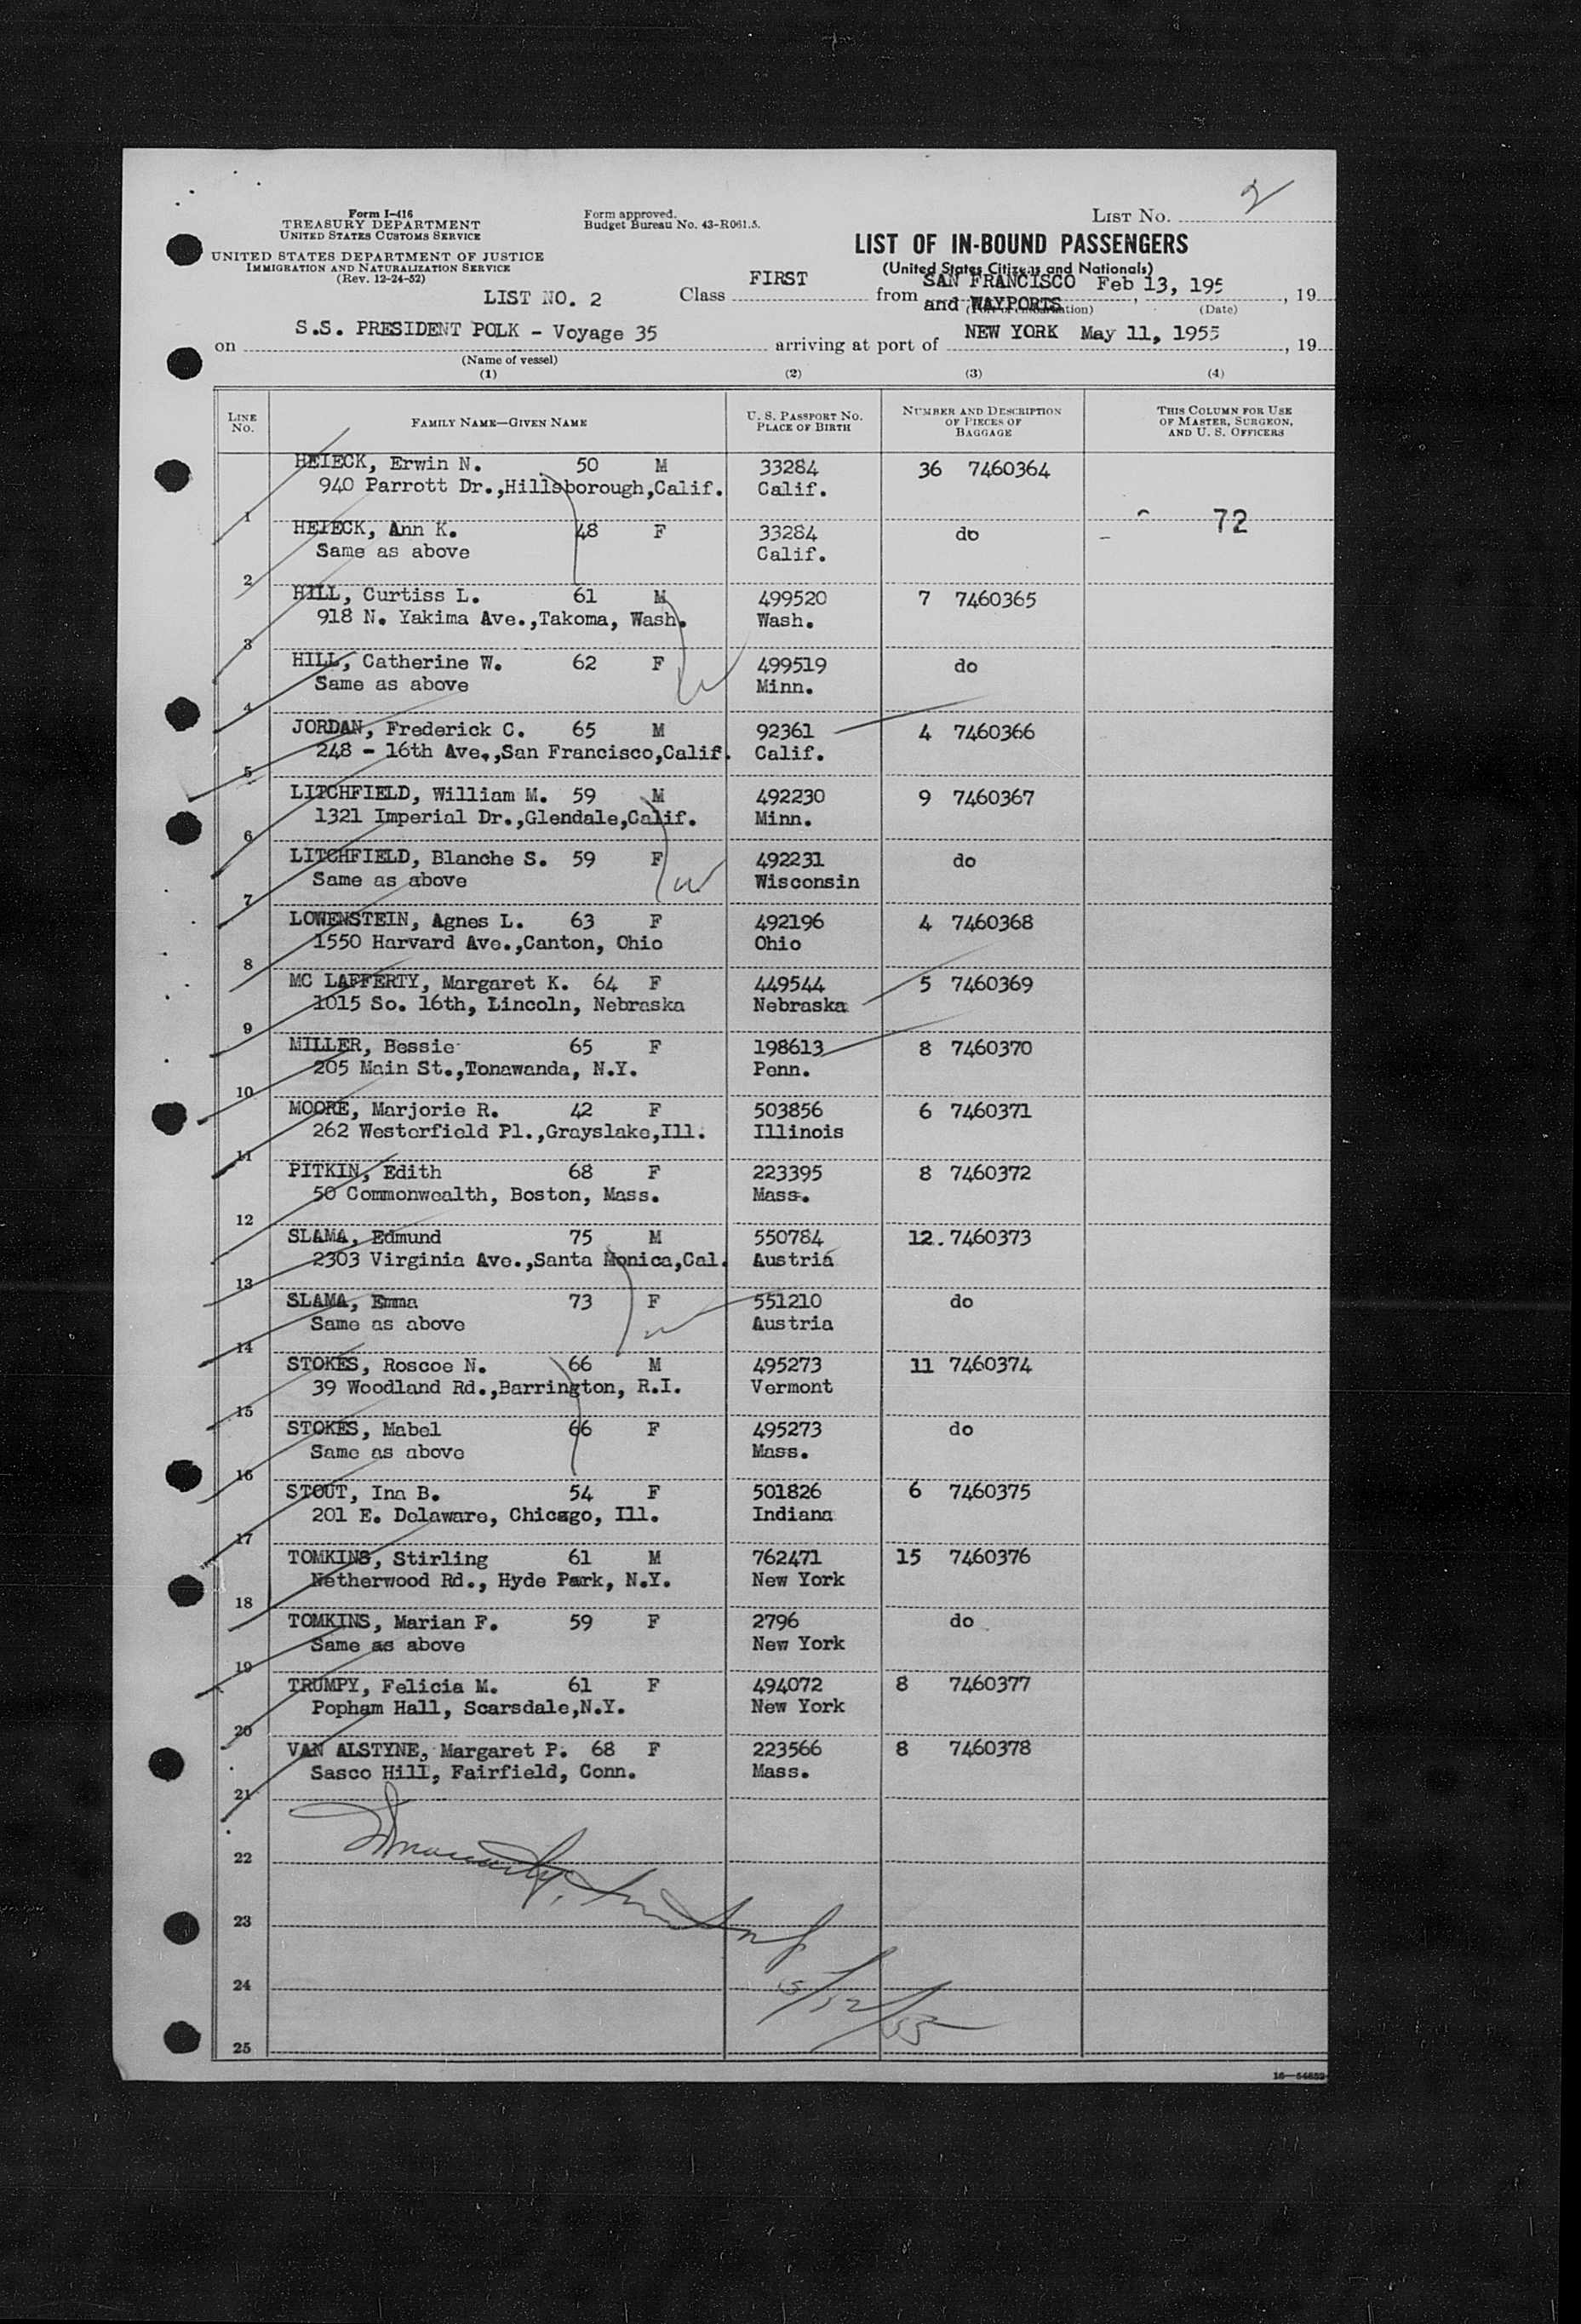 2
Form I-416
TREASURY DEPARTMENT
UNITED STATES CUSTOMS SERVICE
UNITED STATES DEPARTMENT OF JUSTICE
IMMIGRATION AND NATURALIZATION SERVICE
(Rev. 12-24-52)
Form approved.
Budget Bureau No. 43-R061.5.
LIST NO.
LIST OF IN-BOUND PASSENGERS
(United States Citizens and Nationals)
LIST NO. 2 Class FIRST from SAN FRANCISCO Feb 13, 195 , 19
and WAYPORTS (Date)
on S.S. PRESIDENT POLK - Voyage 35 arriving at port of NEW YORK May 11, 1955 , 19
(Name of vessel)
(1) (2) (3) (4)
LINE NO. FAMILY NAME—GIVEN NAME U. S. PASSPORT NO. PLACE OF BIRTH NUMBER AND DESCRIPTION OF PIECES OF BAGGAGE THIS COLUMN FOR USE OF MASTER, SURGEON, AND U. S. OFFICERS
HEIECK, Erwin N. 50 M 33284 36 7460364
940 Parrott Dr.,Hillsborough,Calif. Calif.
1 72
HEIECK, Ann K. 48 F 33284 do
Same as above Calif.
2
HILL, Curtiss L. 61 M 499520 7 7460365
918 N. Yakima Ave.,Takoma, Wash. Wash.
3
HILL, Catherine W. 62 F 499519 do
Same as above Minn.
4
JORDAN, Frederick C. 65 M 92361 4 7460366
248 - 16th Ave.,San Francisco,Calif. Calif.
5
LITCHFIELD, William M. 59 M 492230 9 7460367
1321 Imperial Dr.,Glendale,Calif. Minn.
6
LITCHFIELD, Blanche S. 59 F 492231 do
Same as above Wisconsin
7
LOWENSTEIN, Agnes L. 63 F 492196 4 7460368
1550 Harvard Ave.,Canton, Ohio Ohio
8
MC LAFFERTY, Margaret K. 64 F 449544 5 7460369
1015 So. 16th, Lincoln, Nebraska Nebraska
9
MILLER, Bessie 65 F 198613 8 7460370
205 Main St.,Tonawanda, N.Y. Penn.
10
MOORE, Marjorie R. 42 F 503856 6 7460371
262 Westerfield Pl.,Grayslake,Ill. Illinois
11
PITKIN, Edith 68 F 223395 8 7460372
50 Commonwealth, Boston, Mass. Mass.
12
SLAMA, Edmund 75 M 550784 12.7460373
2303 Virginia Ave.,Santa Monica,Cal. Austria
13
SLAMA, Emma 73 F 551210 do
Same as above Austria
14
STOKES, Roscoe N. 66 M 495273 11 7460374
39 Woodland Rd.,Barrington, R.I. Vermont
15
STOKES, Mabel 66 F 495273 do
Same as above Mass.
16
STOUT, Ina B. 54 F 501826 6 7460375
201 E. Delaware, Chicago, Ill. Indiana
17
TOMKINS, Stirling 61 M 762471 15 7460376
Netherwood Rd., Hyde Park, N.Y. New York
18
TOMKINS, Marian F. 59 F 2796 do
Same as above New York
19
TRUMPY, Felicia M. 61 F 494072 8 7460377
Popham Hall, Scarsdale,N.Y. New York
20
VAN ALSTYNE, Margaret P. 68 F 223566 8 7460378
Sasco Hill, Fairfield, Conn. Mass.
21
22
23
24
5/12/55
25